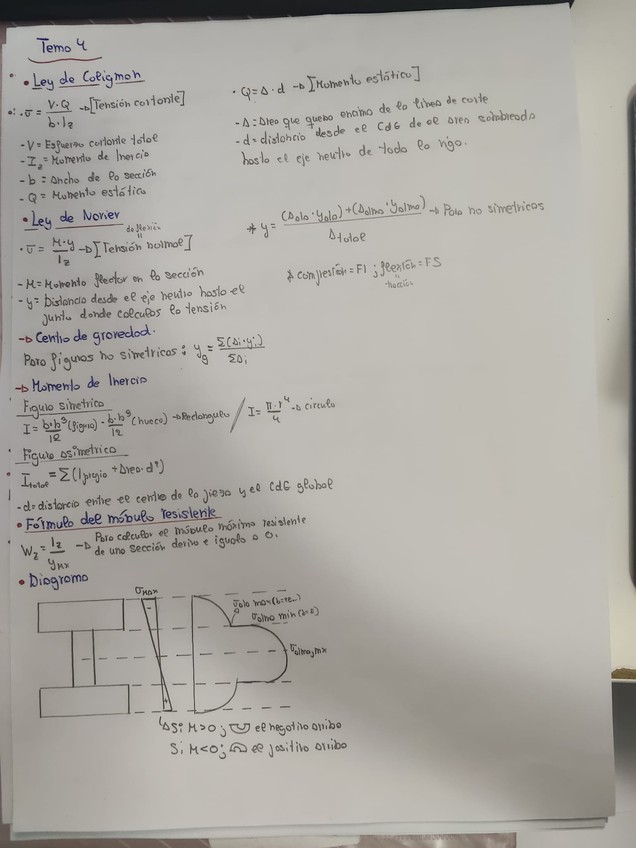 Tema 4
• Ley de Colignon
• σ = V·Q / b·Iz → [Tensión cortante]
- V = Esfuerzo cortante total
- Iz = Momento de Inercia
- b = Ancho de la sección
- Q = Momento estático
• Q = A · d → [Momento estático]
- A = Área que queda encima de la línea de corte
- d = distancia desde el CdG de el área sombreada
hasta el eje neutro de toda la viga.
• Ley de Navier
de flexión
• σ = M·y / Iz → [Tensión normal]
- M = Momento flector en la sección
- y = Distancia desde el eje neutro hasta el
punto donde calculas la tensión
* y = (Aala · yala) + (Aalma · yalma) / Atotal → Para no simetricos
* compresión = FI ; flexión = FS
tracción
→ Centro de gravedad.
Para figuras no simetricas : yg = Σ(Ai·yi) / ΣAi
→ Momento de Inercia
Figura simetrica
I = b·h³/12 (figura) - b·h³/12 (hueco) → Rectangulo / I = π·r⁴/4 → circulo
Figura asimetrica
Itotal = Σ(Ipropia + Area·d²)
- d = distancia entre el centro de la pieza y el CdG global
• Fórmula del módulo resistente
Wz = Iz / ymx → Para calcular el módulo máximo resistente
de una sección deriva e iguala a 0.
• Diagrama
σmax
σala max (b=
σalma min (b=
σalma, mx
↳ Si M>0 ; el negativo arriba
Si M<0 ; el positivo arriba